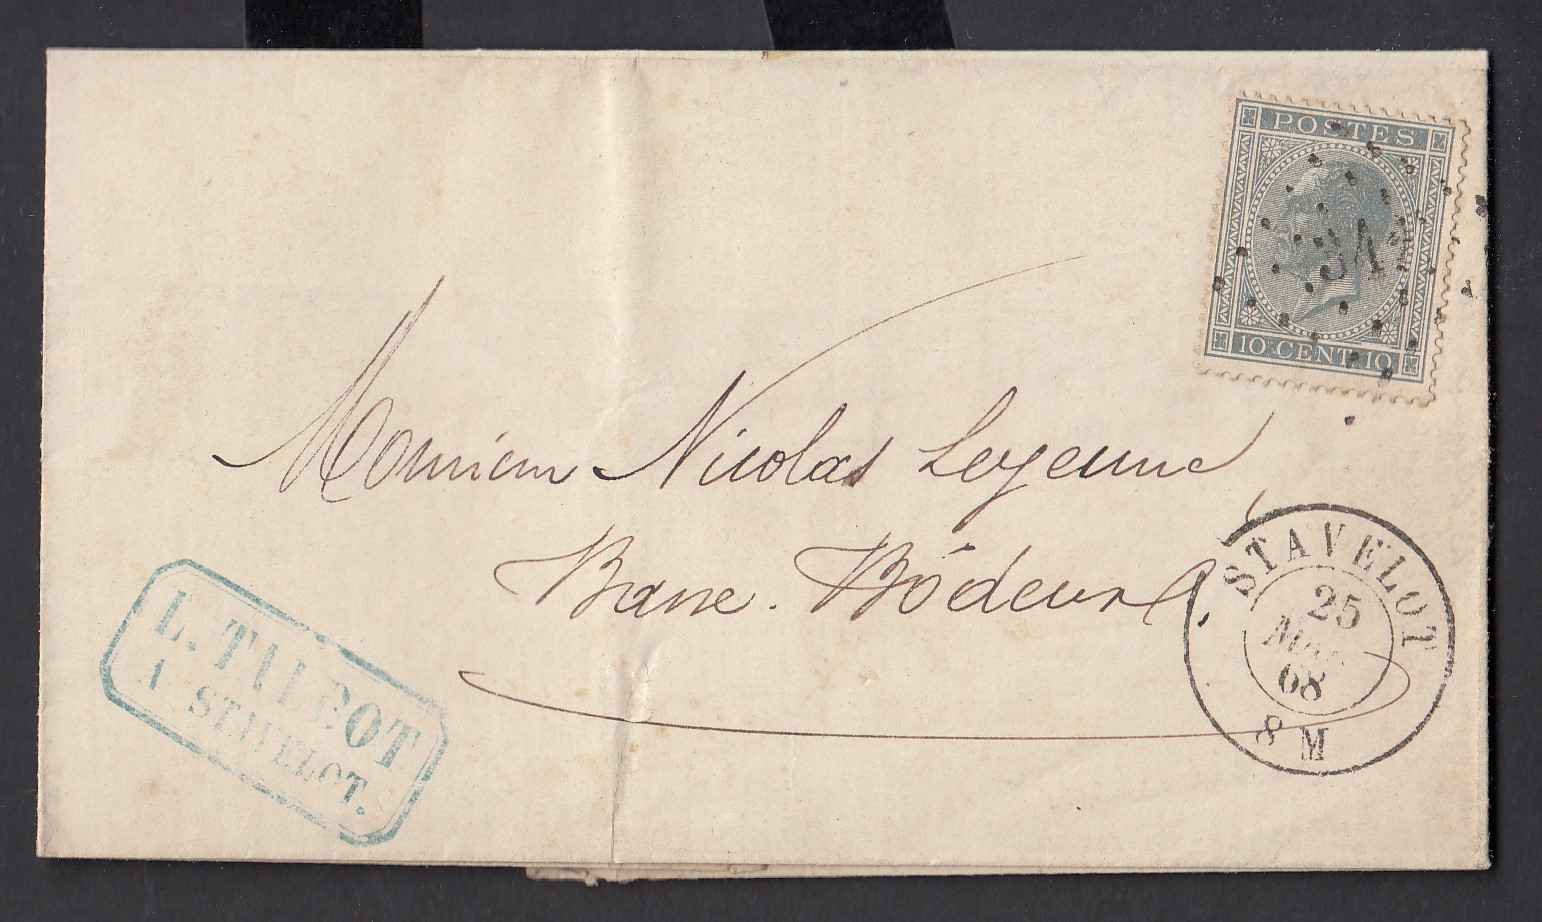 POSTES
10 CENT 10
Monsieur Nicolas Lejeune
Bodeux
STAVELOT
25
68
8 M
L. TALBOT
A STAVELOT.